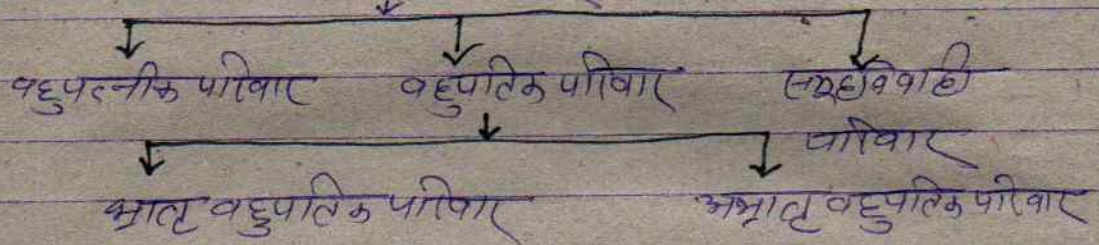 वहुपत्नीक परिवार वहुपतिक परिवार समूहविवाही
परिवार
भ्रातृ वहुपतिक परिवार अभ्रातृ वहुपतिक परिवार